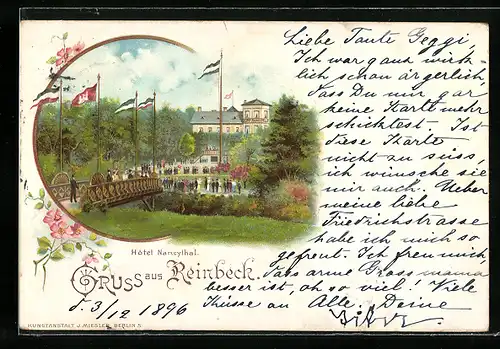 Liebe Tante Geggi,
Ich war ganz wirk-
lich schon ärgerlich
dass Du mir gar
keine Karte mehr
schicktest. Ist
diese Karte
nicht zu süss,
ich wünsche sie
mir auch. Ueber
meine liebe
Friedrichstrasse
habe ich mich so
gefreut. Ich freu mich,
dass arme Grossmama
besser ist, oh so viel! Viele
Küsse an Alle. Deine
Hôtel Nancythal.
GRUSS aus Reinbeck.
d. 3/12 1896
KUNSTANSTALT J. MIESLER, BERLIN S.